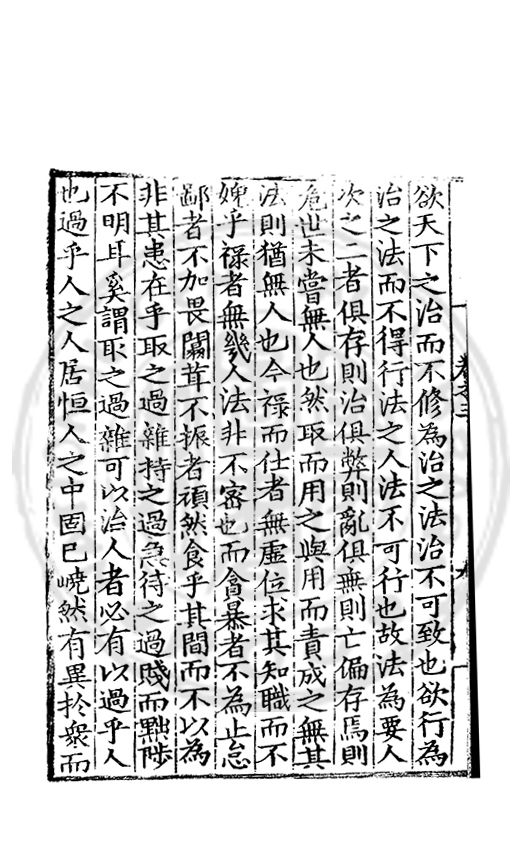 卷之三 九
欲天下之治而不修為治之法治不可致也欲行為
治之法而不得行法之人法不可行也故法為要人
次之二者俱存則治俱弊則亂俱無則亡偏存焉則
危世未嘗無人也然取而用之與用而責成之無其
法則猶無人也今祿而仕者無虛位求其知職而不
媿乎祿者無幾人法非不密也而貪暴者不為止怠
鄙者不加畏闒茸不振者頑然食乎其間而不以為
非其患在乎取之過雜持之過急待之過賤而黜陟
不明耳奚謂取之過雜可以治人者必有以過乎人
也過乎人之人居恒人之中固已嶢然有異於衆而